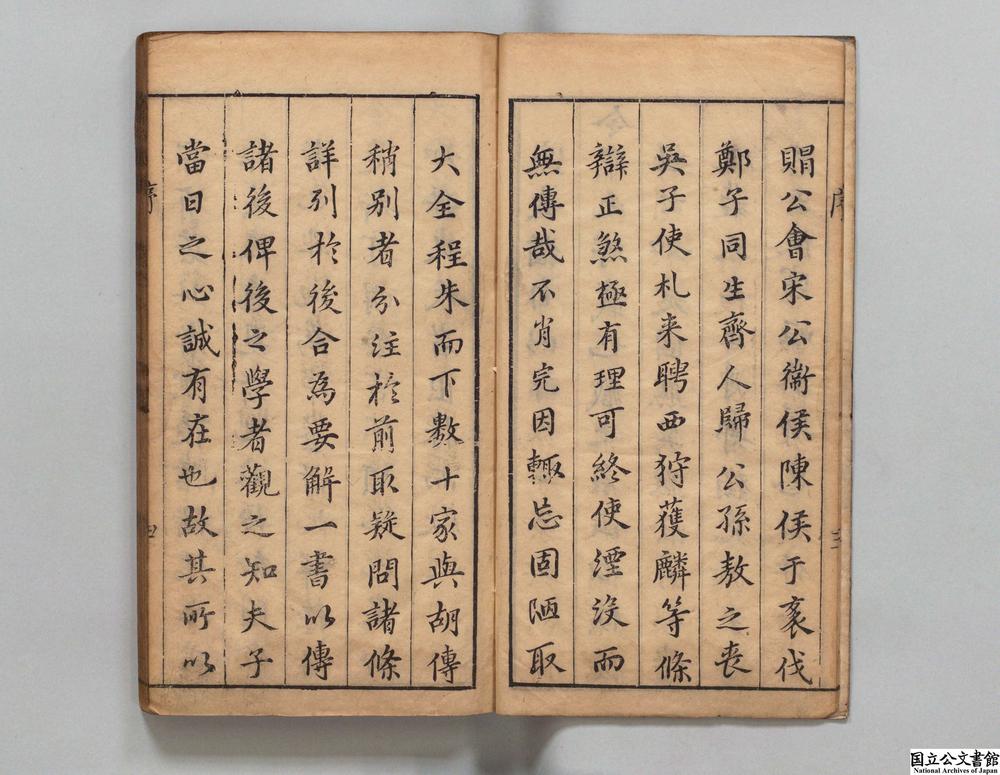 賵公會宋公衞侯陳侯于袤伐
鄭子同生齊人歸公孫敖之丧
吳子使札来聘西狩獲麟等條
辯正煞極有理可終使湮沒而
無傳哉不肖完因輙忘固陋取
大全程朱而下數十家與胡傳
稍别者分注於前取疑問諸條
詳列於後合為要解一書以傳
諸後俾後之學者觀之知夫子
當日之心誠有在也故其所以
序
序
四
国立公文書館
National Archives of Japan